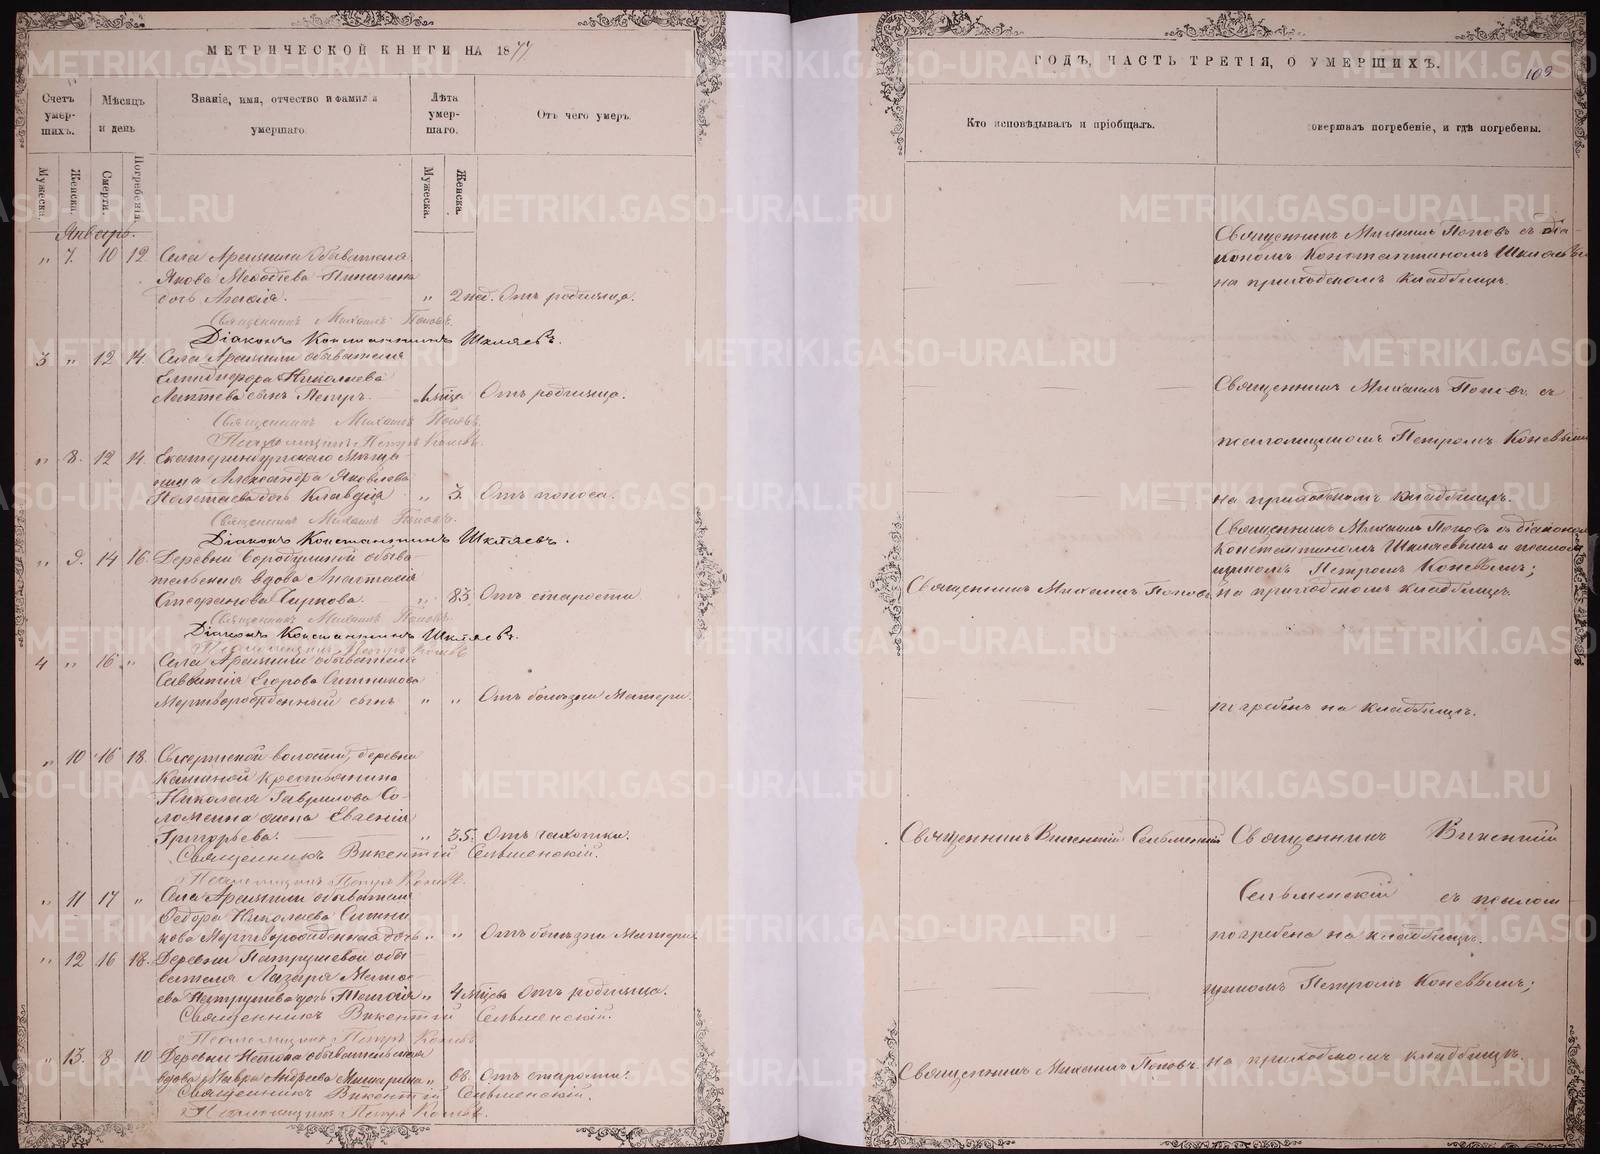 МЕТРИЧЕСКОЙ КНИГИ НА 1877
Счетъ умер-шихъ.
Мѣсяцъ и день
Званіе, имя, отчество и фамилія умершаго.
Лѣта умер-шаго.
Отъ чего умеръ.
Мужеска.
Женска.
Смерти.
Погребенія.
Мужеска.
Женска.
Январь.
„ 7. 10 12 Села Арамили обывателя
Якова Меѳодіева
дочь „ 2 нед. Отъ родимца.
Священникъ Михаилъ Поповъ.
Діаконъ Константинъ Шкляевъ.
3 „ 12 14. Села Арамили обывателя
Елпидифора Николаева
сынъ Петръ. 1 мѣсца Отъ родимца.
Священникъ Михаилъ Поповъ.
Псаломщикъ Петръ Коневъ.
„ 8. 12 14. Екатеринбургскаго мѣща-
нина Александра Яковлева
Полетаева дочь Клавдія „ 3. Отъ поноса.
Священникъ Михаилъ Поповъ.
Діаконъ Константинъ Шкляевъ.
„ 9. 14 16. Деревни Бородулиной обыва-
тельская вдова Анастасія
Стефанова „ 83. Отъ старости.
Священникъ Михаилъ Поповъ.
Діаконъ Константинъ Шкляевъ.
Псаломщикъ Петръ Коневъ
4 „ 16 „ Села Арамили обывателя
Савватія Егорова Ситникова
Мертворожденный сынъ „ „ Отъ болѣзни Матери.
„ 10 16 18. Сысертской волости, деревни
Кашиной крестьянина
Николая Гаврилова Со-
ломеина жена Евгенія
Григорьева. „ 35. Отъ чахотки.
Священникъ Викентій Сельменскій.
Псаломщикъ Петръ Коневъ.
„ 11 17 „ Села Арамили обывателя
Ѳедора Николаева Ситни-
кова Мертворожденная дочь „ „ Отъ болѣзни Матери.
„ 12 16 18. Деревни Патрушевой обы-
вателя Лазаря Матѳе-
ева Патрушева дочь „ 4 мѣсцы Отъ родимца.
Священникъ Викентій Сельменскій.
Псаломщикъ Петръ Коневъ
„ 13. 8 10 Деревни обывательская
вдова Мавра Андреева „ 68. Отъ старости.
Священникъ Викентій Сельменскій.
Псаломщикъ Петръ Коневъ.
ГОДЪ, ЧАСТЬ ТРЕТІЯ, О УМЕРШИХЪ.
109
Кто исповѣдывалъ и пріобщалъ.
совершалъ погребеніе, и гдѣ погребены.
Священникъ Михаилъ Поповъ съ діа-
кономъ Константиномъ Шкляевымъ
на приходскомъ кладбищѣ.
Священникъ Михаилъ Поповъ съ
псаломщикомъ Петромъ Коневымъ
на приходскомъ кладбищѣ.
Священникъ Михаилъ Поповъ съ діакономъ
Константиномъ Шкляевымъ и псалом-
щикомъ Петромъ Коневымъ;
Священникъ Михаилъ Поповъ. на приходскомъ кладбищѣ.
погребенъ на кладбищѣ.
Священникъ Викентій Сельменскій Священникъ Викентій
Сельменскій съ псалом-
погребена на кладбищѣ.
щикомъ Петромъ Коневымъ;
Священникъ Михаилъ Поповъ. на приходскомъ кладбищѣ.
METRIKI.GASO-URAL.RU